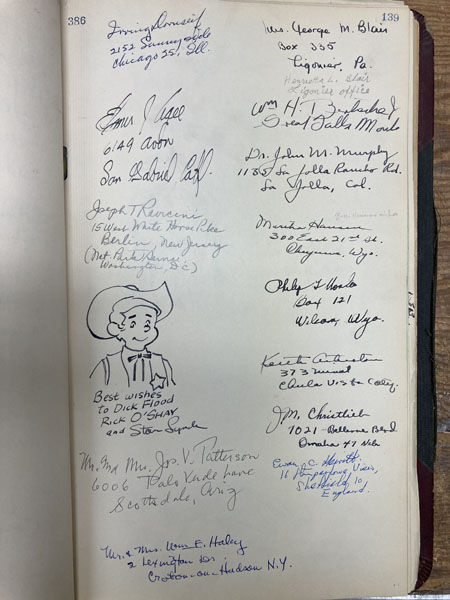 386
Irving
2152 Sunnyside
Chicago 25, Ill.
Elmer J.
6149 Avon
San Gabriel Calif.
Joseph T Ravicini
15 West White Horse Pike
Berlin, New Jersey
(Nat. Park Service
Washington, D.C.)
Best wishes
to Dick Flood
Rick O'Shay
and Stan Lynde
Mr. and Mrs. Jos. V. Patterson
6006 Palo Verde Lane
Scottsdale, Ariz
Mr. & Mrs. Wm E. Haley
2 Lexington Dr.
Croton-on-Hudson N.Y.
139
Mrs. George M. Blair
Box 335
Ligonier, Pa.
Henrietta L. Blair
Ligonier office
Wm H.
Great Falls
Dr. John M. Murphy
La Jolla Rancho Rd.
La Jolla, Cal.
Martha Hansen
300 East 21st St.
Cheyenne, Wyo.
Philip
Box 121
Wilcox, Wyo.
Keith
373
Chula Vista Calif.
J.M. Christlieb
7021 Bellevue Blvd
Omaha 47 Neb
Sheffield 10
England.